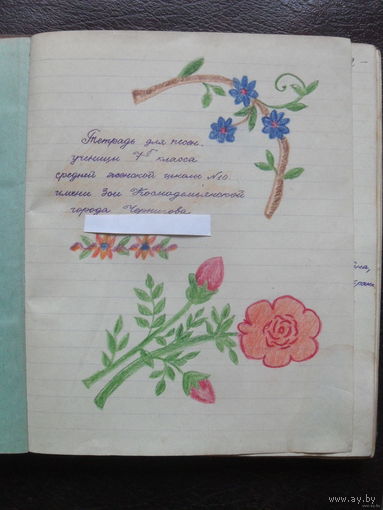 Тетрадь для песен.
ученицы 7б класса
средней женской школы №10.
имени Зои Космодемьянской
города Чернигова
www.ay.by